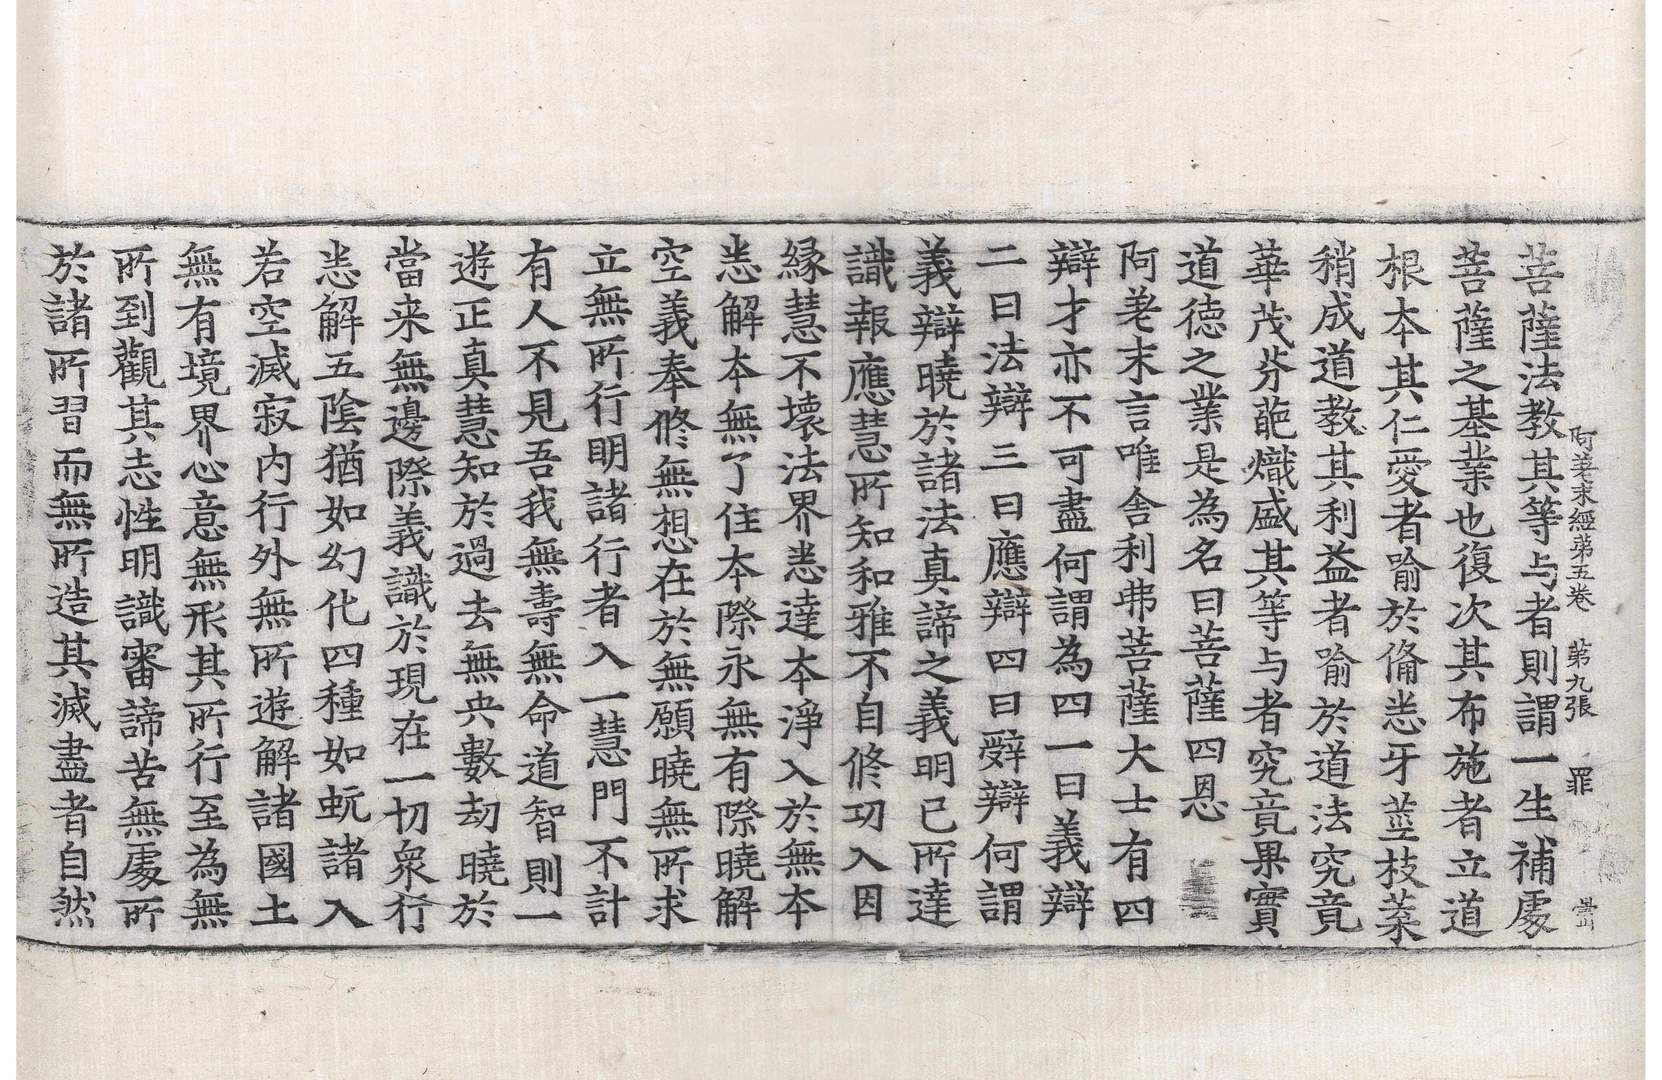 阿差末經第五卷　第九張　罪
菩薩法教其等与者則謂一生補處
菩薩之基業也復次其布施者立道
根本其仁愛者喻於俻悉牙莖枝葉
稍成道教其利益者喻於道法究竟
華茂芬葩熾盛其等与者究竟果實
道德之業是為名曰菩薩四恩
阿差末言唯舍利弗菩薩大士有四
辯才亦不可盡何謂為四一曰義辯
二曰法辯三曰應辯四曰辭辯何謂
義辯曉於諸法真諦之義明已所達
識報應慧所知和雅不自修功入因
緣慧不壞法界悉達本淨入於無本
悉解本無了住本際永無有際曉解
空義奉修無想在於無願曉無所求
立無所行明諸行者入一慧門不計
有人不見吾我無壽無命道智則一
遊正真慧知於過去無央數劫曉於
當来無邊際義識於現在一切衆行
悉解五陰猶如幻化四種如蚖諸入
若空滅寂內行外無所遊解諸國土
無有境界心意無形其所行至為無
所到觀其志性明識審諦苦無處所
於諸所習而無所造其滅盡者自然